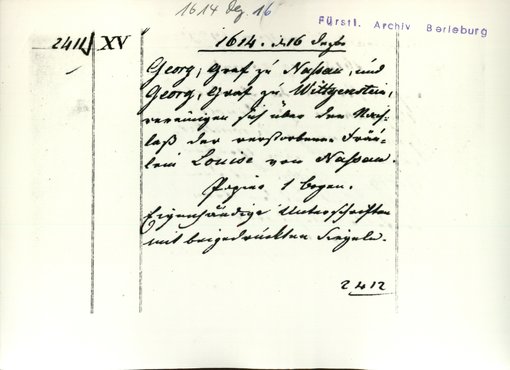 1614 Dez. 16
Fürstl. Archiv Berleburg
2411 XV
1614. d. 16 Dezbr
Georg, Graf zu Naßau, und
Georg, Graf zu Wittgenstein,
vereinigen sich über den Nach-
laß der verstorbenen Fräu-
lein Louise von Naßau.
Papier 1 Bogen.
Eigenhändige Unterschriften
mit beigedrückten Siegeln.
2412